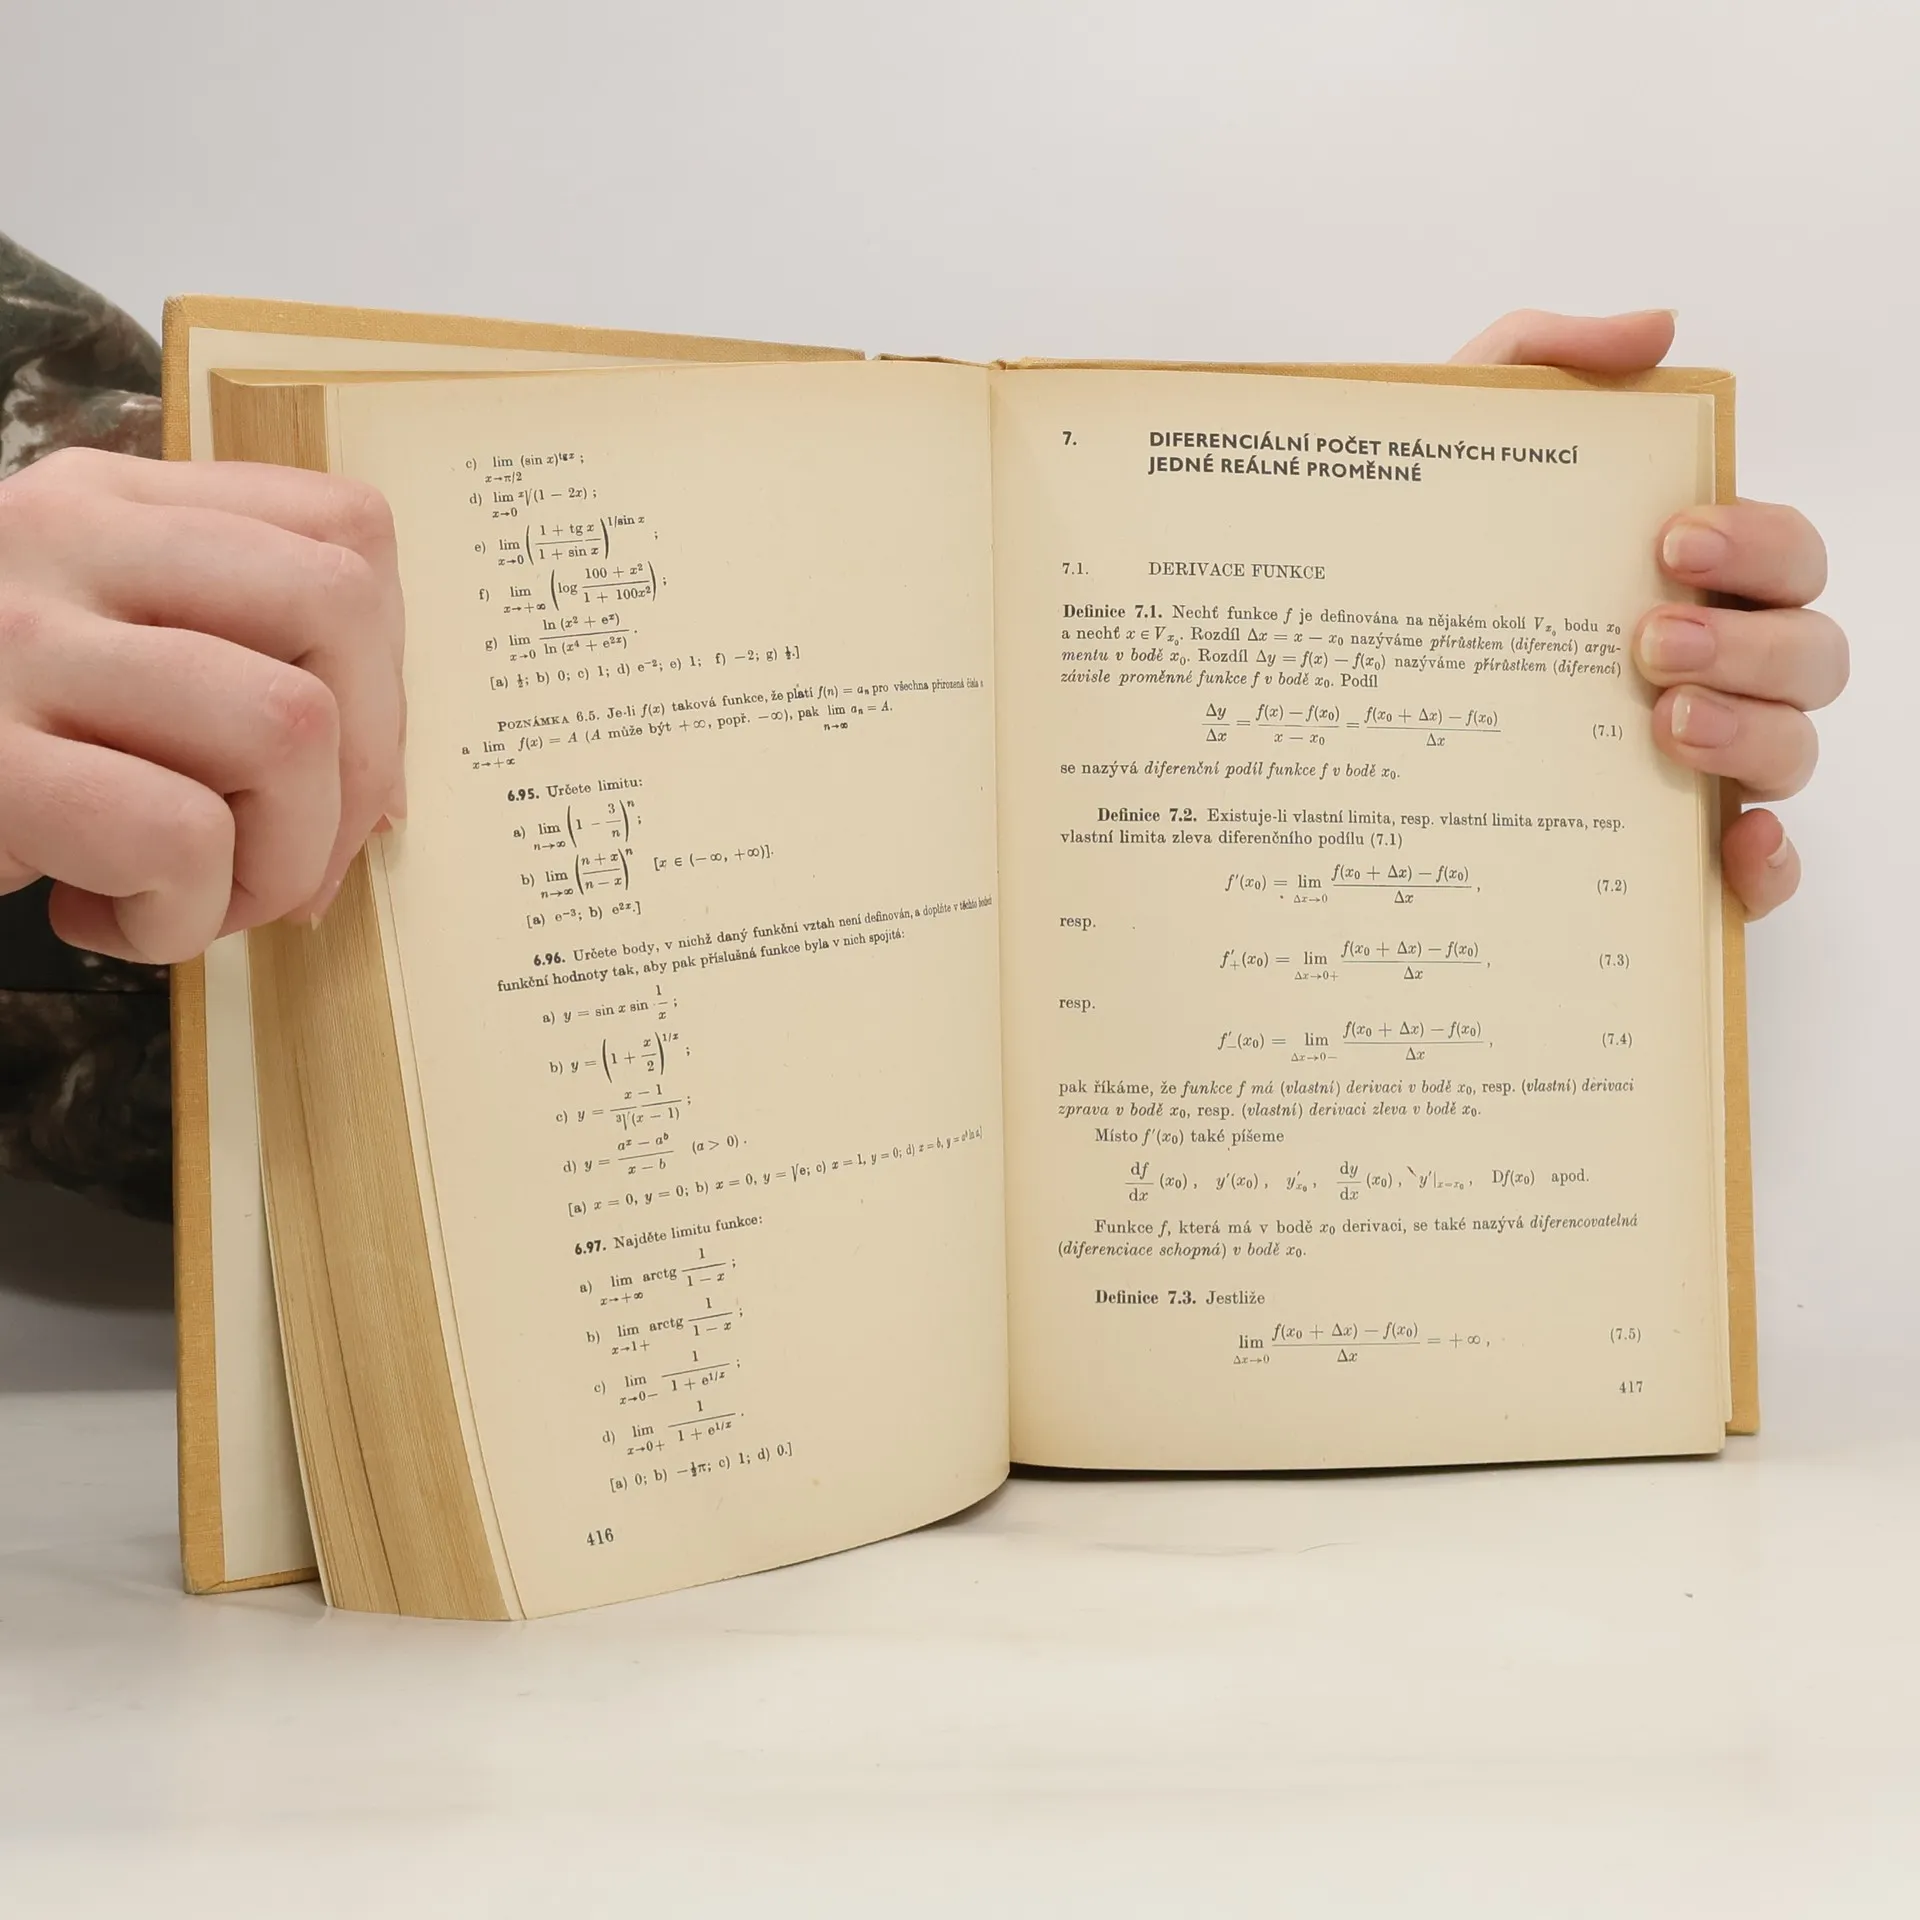 c) lim (sin x)^tg x ;
x→π/2
d) lim ^x√(1 − 2x) ;
x→0
e) lim ((1 + tg x)/(1 + sin x))^1/sin x ;
x→0
f) lim (log (100 + x²)/(1 + 100x²)) ;
x→+∞
g) lim ln (x² + e^x)/ln (x⁴ + e^2x) .
x→0
[a) ½; b) 0; c) 1; d) e⁻²; e) 1; f) −2; g) ½.]
POZNÁMKA 6.5. Je-li f(x) taková funkce, že platí f(n) = aₙ pro všechna přirozená čísla n
a lim f(x) = A (A může být +∞, popř. −∞), pak lim aₙ = A.
x→+∞ n→∞
6.95. Určete limitu:
a) lim (1 − 3/n)^n ;
n→∞
b) lim ((n + x)/(n − x))^n [x ∈ (−∞, +∞)].
n→∞
[a) e⁻³; b) e^2x.]
6.96. Určete body, v nichž daný funkční vztah není definován, a doplňte v těchto bodech
funkční hodnoty tak, aby pak příslušná funkce byla v nich spojitá:
a) y = sin x sin 1/x ;
b) y = (1 + x/2)^1/x ;
c) y = (x − 1)/³√(x − 1) ;
d) y = (a^x − a^b)/(x − b) (a > 0) .
[a) x = 0, y = 0; b) x = 0, y = √e; c) x = 1, y = 0; d) x = b, y = a^b ln a.]
6.97. Najděte limitu funkce:
a) lim arctg 1/(1 − x) ;
x→+∞
b) lim arctg 1/(1 − x) ;
x→1+
c) lim 1/(1 + e^1/x) ;
x→0−
d) lim 1/(1 + e^1/x) .
x→0+
[a) 0; b) −½π; c) 1; d) 0.]
416
7. DIFERENCIÁLNÍ POČET REÁLNÝCH FUNKCÍ
JEDNÉ REÁLNÉ PROMĚNNÉ
7.1. DERIVACE FUNKCE
Definice 7.1. Nechť funkce f je definována na nějakém okolí V_x₀ bodu x₀
a nechť x ∈ V_x₀. Rozdíl Δx = x − x₀ nazýváme přírůstkem (diferencí) argu-
mentu v bodě x₀. Rozdíl Δy = f(x) − f(x₀) nazýváme přírůstkem (diferencí)
závisle proměnné funkce f v bodě x₀. Podíl
Δy/Δx = (f(x) − f(x₀))/(x − x₀) = (f(x₀ + Δx) − f(x₀))/Δx (7.1)
se nazývá diferenční podíl funkce f v bodě x₀.
Definice 7.2. Existuje-li vlastní limita, resp. vlastní limita zprava, resp.
vlastní limita zleva diferenčního podílu (7.1)
f′(x₀) = lim (f(x₀ + Δx) − f(x₀))/Δx , (7.2)
Δx→0
resp.
f′₊(x₀) = lim (f(x₀ + Δx) − f(x₀))/Δx , (7.3)
Δx→0+
resp.
f′₋(x₀) = lim (f(x₀ + Δx) − f(x₀))/Δx , (7.4)
Δx→0−
pak říkáme, že funkce f má (vlastní) derivaci v bodě x₀, resp. (vlastní) derivaci
zprava v bodě x₀, resp. (vlastní) derivaci zleva v bodě x₀.
Místo f′(x₀) také píšeme
df/dx (x₀) , y′(x₀) , y′_x₀ , dy/dx (x₀) , y′|_x=x₀ , Df(x₀) apod.
Funkce f, která má v bodě x₀ derivaci, se také nazývá diferencovatelná
(diferenciace schopná) v bodě x₀.
Definice 7.3. Jestliže
lim (f(x₀ + Δx) − f(x₀))/Δx = +∞ , (7.5)
Δx→0
417